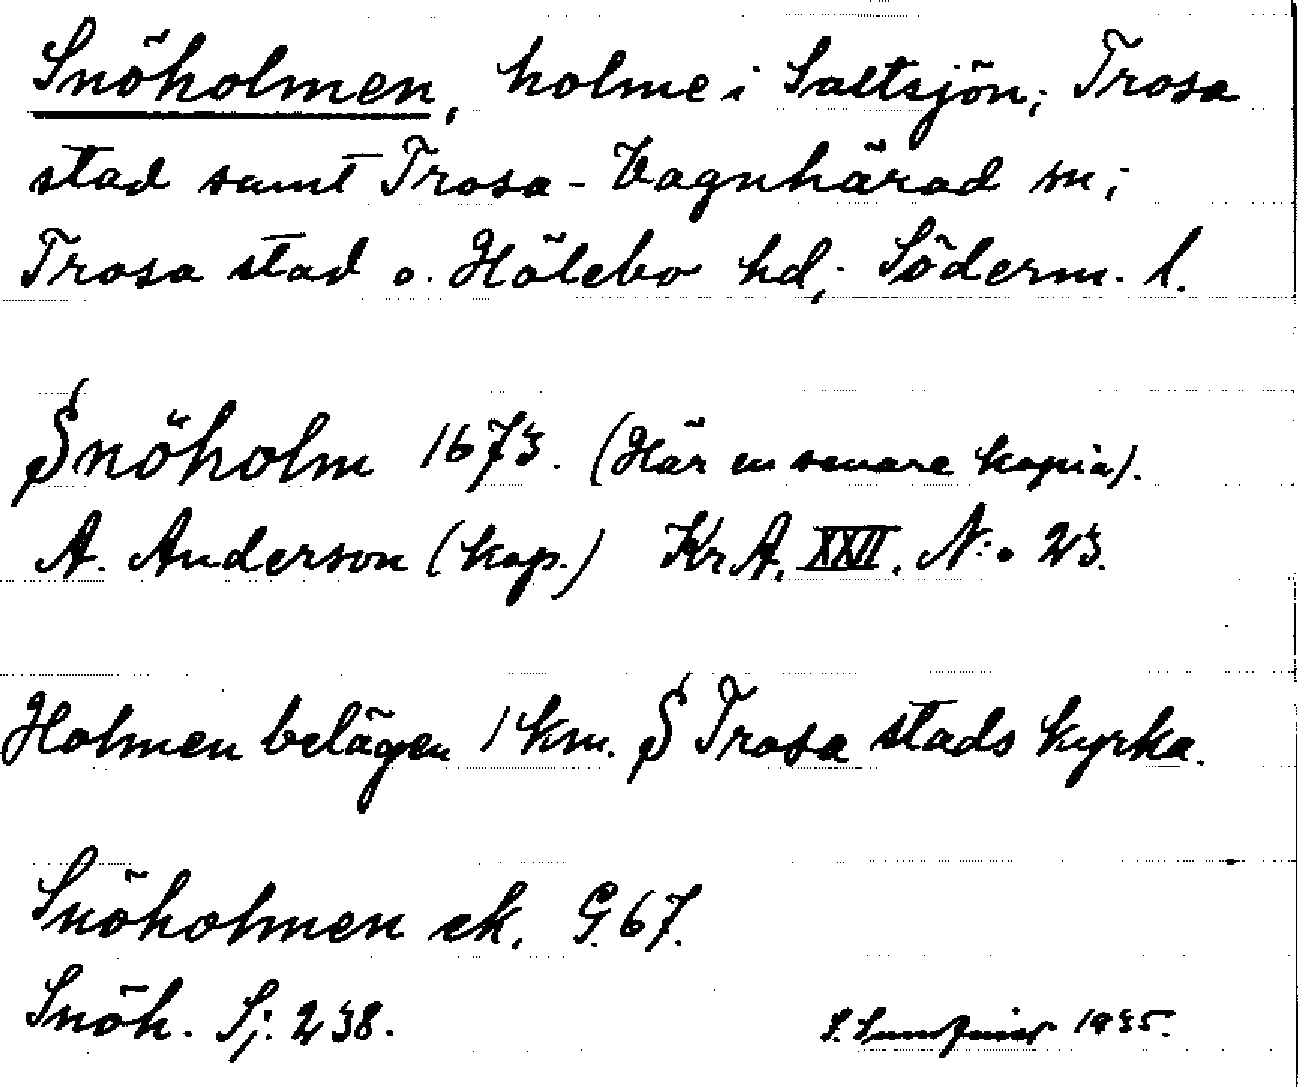 Snöholmen, holme i Saltsjön; Trosa
stad samt Trosa-Vagnhärad sn;
Trosa stad o. Hölebo hd; Söderm. l.
Snöholm 1673. (Här en senare kopia).
A. Anderson (kop.) KrA. XXVI. N:o 23.
Holmen belägen 1 km. S Trosa stads kyrka.
Snöholmen ek. G. 67.
Snöh. Sj: 238.
S. 1935.